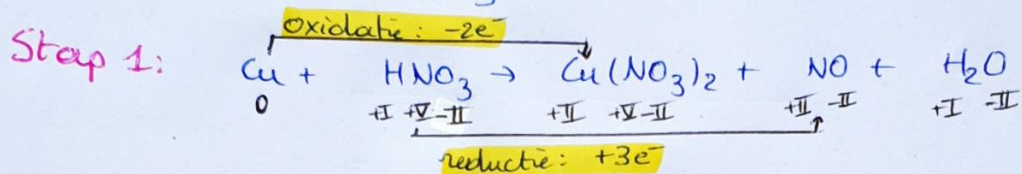 oxidatie: -2e⁻
Stap 1: Cu + HNO₃ → Cu(NO₃)₂ + NO + H₂O
0 +I +V -II +II +V -II +II -II +I -II
reductie: +3e⁻